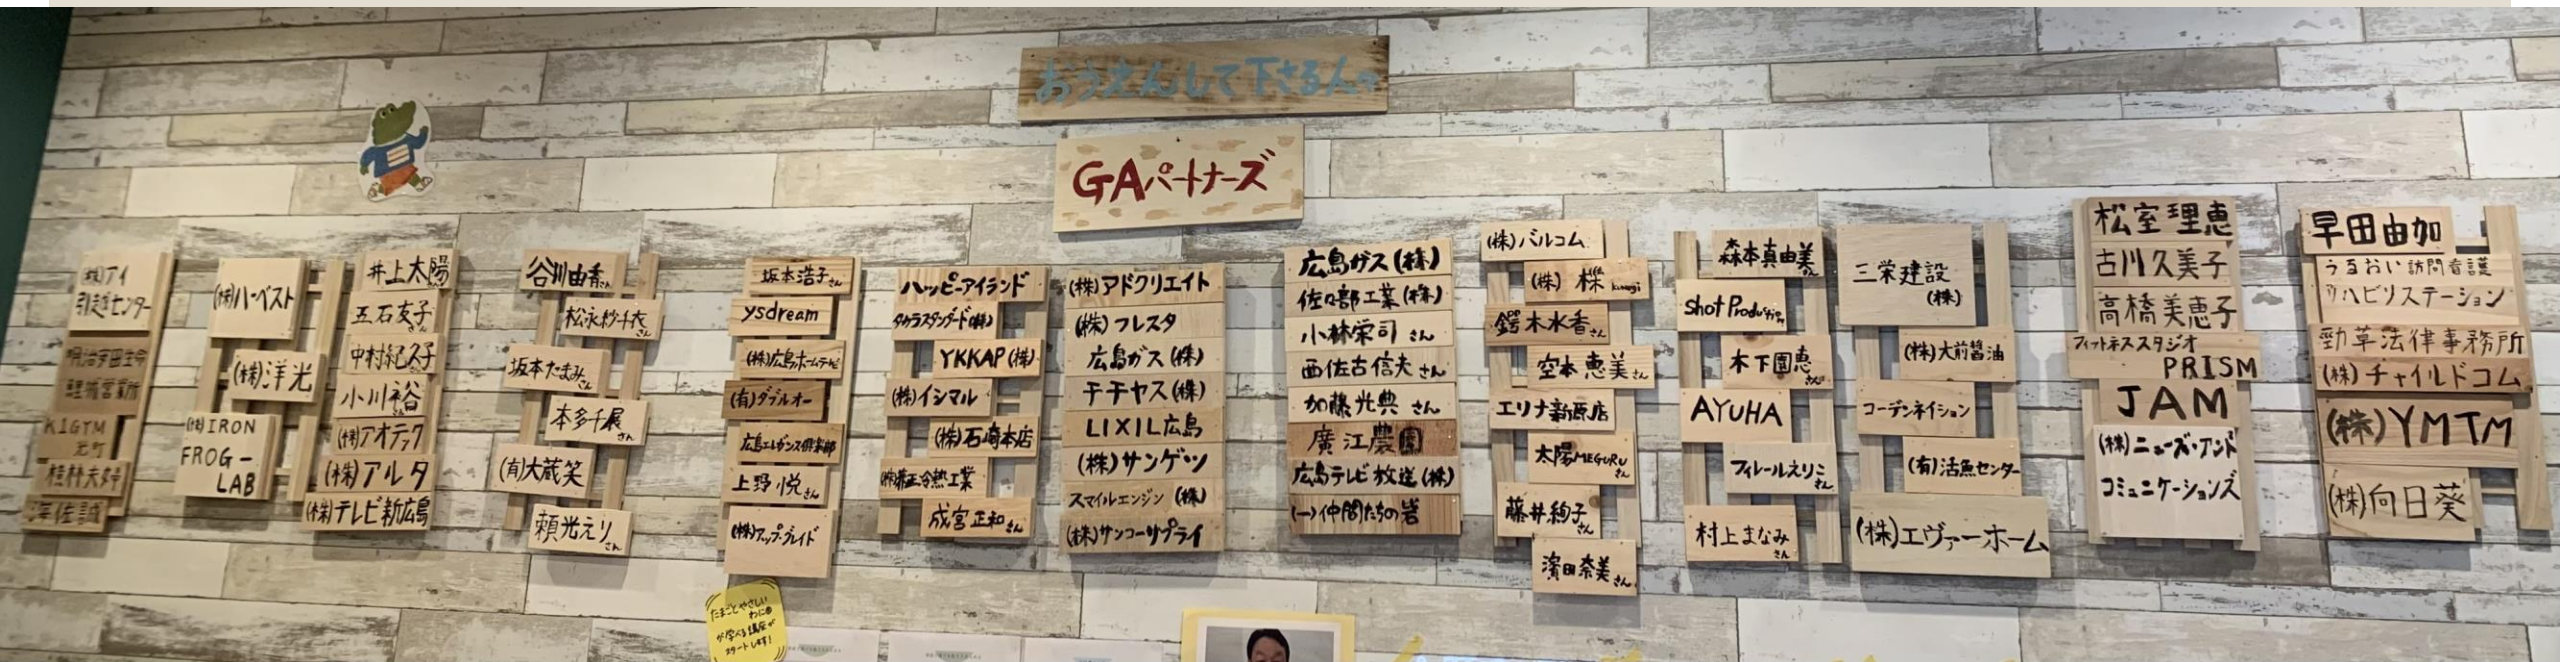 おうえんして下さる人々
GAパートナーズ
(株)アイ
引越センター
明治安田生命
鯉城営業所
K1GYM
光町
桂林夫婦
(株)ハーベスト
(株)洋光
(株)IRON
FROG-
LAB
井上太陽
五石友子さん
中村紀久子
小川裕さん
(株)アオテック
(株)アルタ
(株)テレビ新広島
谷川由香さん
松永紗千衣さん
坂本たまみさん
本多千展さん
(有)大蔵笑
頼光えりさん
坂本浩子さん
ysdream
(株)広島ホームテレビ
(有)ダブルオー
広島エレガンス倶楽部
上野悦さん
(株)アップ・グレイド
ハッピーアイランド
タカラスタンダード(株)
YKKAP(株)
(株)イシマル
(株)石崎本店
成宮正和さん
(株)アドクリエイト
(株)フレスタ
広島ガス(株)
チチヤス(株)
LIXIL広島
(株)サンゲツ
スマイルエンジン(株)
(株)サンコーサプライ
広島ガス(株)
佐々部工業(株)
小林栄司さん
西佐古信夫さん
加藤光典さん
廣江農園
広島テレビ放送(株)
(一)仲間たちの岩
(株)バルコム
鍔木水香さん
空本恵美さん
エリナ新原店
太陽MEGURUさん
藤井絢子さん
濱田奈美さん
森本真由美さん
Shot Production
木下園恵さん
AYUHA
フィレールえりこさん
村上まなみさん
三栄建設
(株)
(株)大前醤油
コーデンネイション
(有)活魚センター
(株)エヴァーホーム
松室理恵
古川久美子
高橋美恵子
フィットネススタジオ
PRISM
JAM
(株)ニューズ・アンド
コミュニケーションズ
早田由加
うるおい訪問看護
リハビリステーション
勁草法律事務所
(株)チャイルドコム
(株)YMTM
(株)向日葵
たまごとやさしい
が学べる講座が
スタートします!